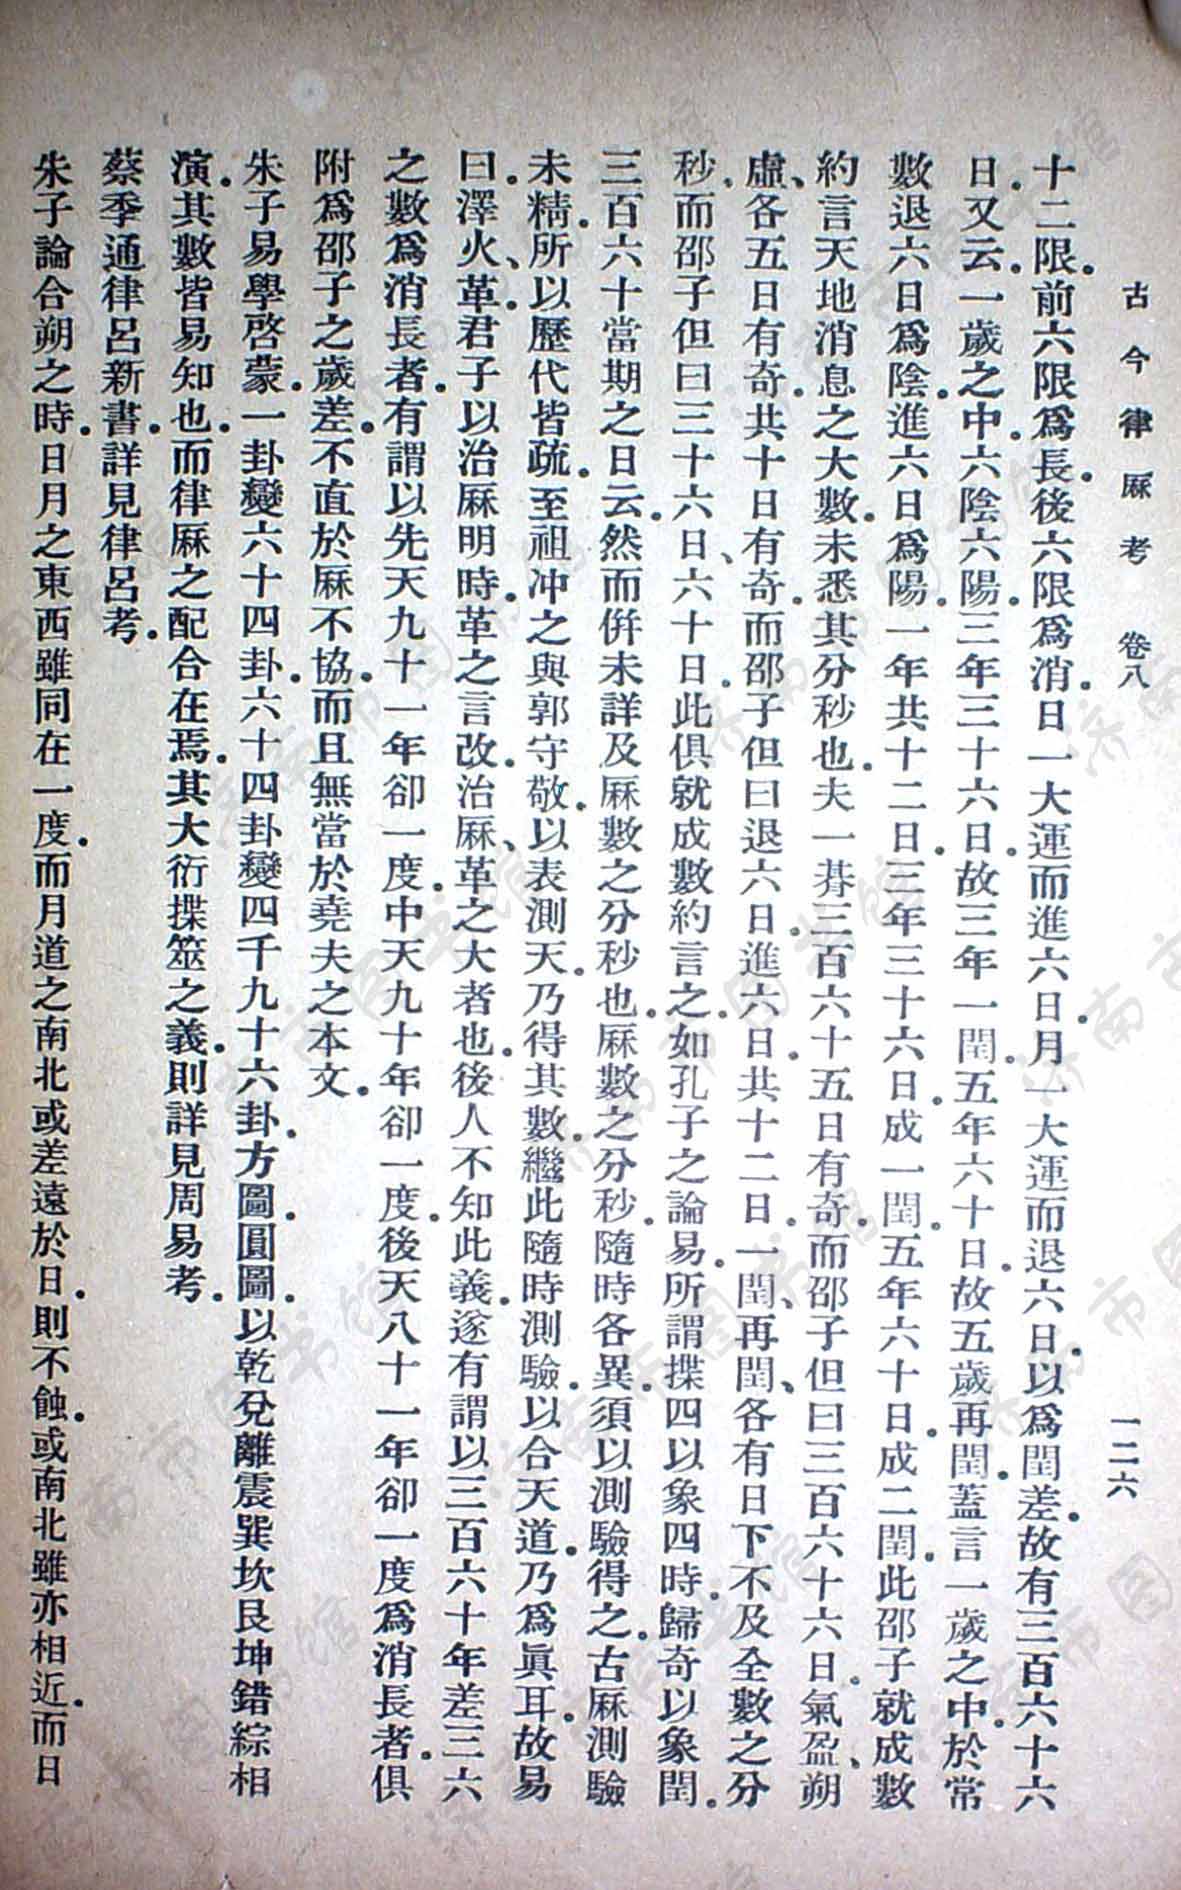 古今律厤考　卷八　一二六
十二限。前六限爲長。後六限爲消。日一大運而進六日。月一大運而退六日。以爲閏差。故有三百六十六
日。又云。一歲之中。六陰六陽。三年三十六日。故三年一閏。五年六十日。故五歲再閏。蓋言一歲之中。於常
數退六日爲陰。進六日爲陽。一年共十二日。三年三十六日。成一閏。五年六十日。成二閏。此邵子就成數
約言天地消息之大數。未悉其分秒也。夫一朞三百六十五日有奇。而邵子但曰三百六十六日。氣盈、朔
虛、各五日有奇。共十日有奇。而邵子但曰退六日。進六日。共十二日。一閏、再閏、各有日下不及全數之分
秒。而邵子但曰三十六日、六十日。此俱就成數約言之。如孔子之論易。所謂揲四以象四時。歸奇以象閏。
三百六十當期之日云。然而倂未詳及厤數之分秒也。厤數之分秒。隨時各異。須以測驗得之。古厤測驗
未精。所以歷代皆疏。至祖冲之與郭守敬。以表測天。乃得其數。繼此隨時測驗。以合天道。乃爲眞耳。故易
曰。澤火、革。君子以治厤明時。革之言改。治厤、革之大者也。後人不知此義。遂有謂以三百六十年差三六
之數爲消長者。有謂以先天九十一年卻一度。中天九十年卻一度。後天八十一年卻一度爲消長者。俱
附爲邵子之歲差。不直於厤不協。而且無當於堯夫之本文。
朱子易學啓蒙。一卦變六十四卦。六十四卦變四千九十六卦。方圖。圓圖。以乾兌離震巽坎艮坤錯綜相
演。其數皆易知也。而律厤之配合在焉。其大衍揲筮之義。則詳見周易考。
蔡季通律呂新書。詳見律呂考。
朱子論合朔之時。日月之東西雖同在一度。而月道之南北或差遠於日。則不蝕。或南北雖亦相近。而日